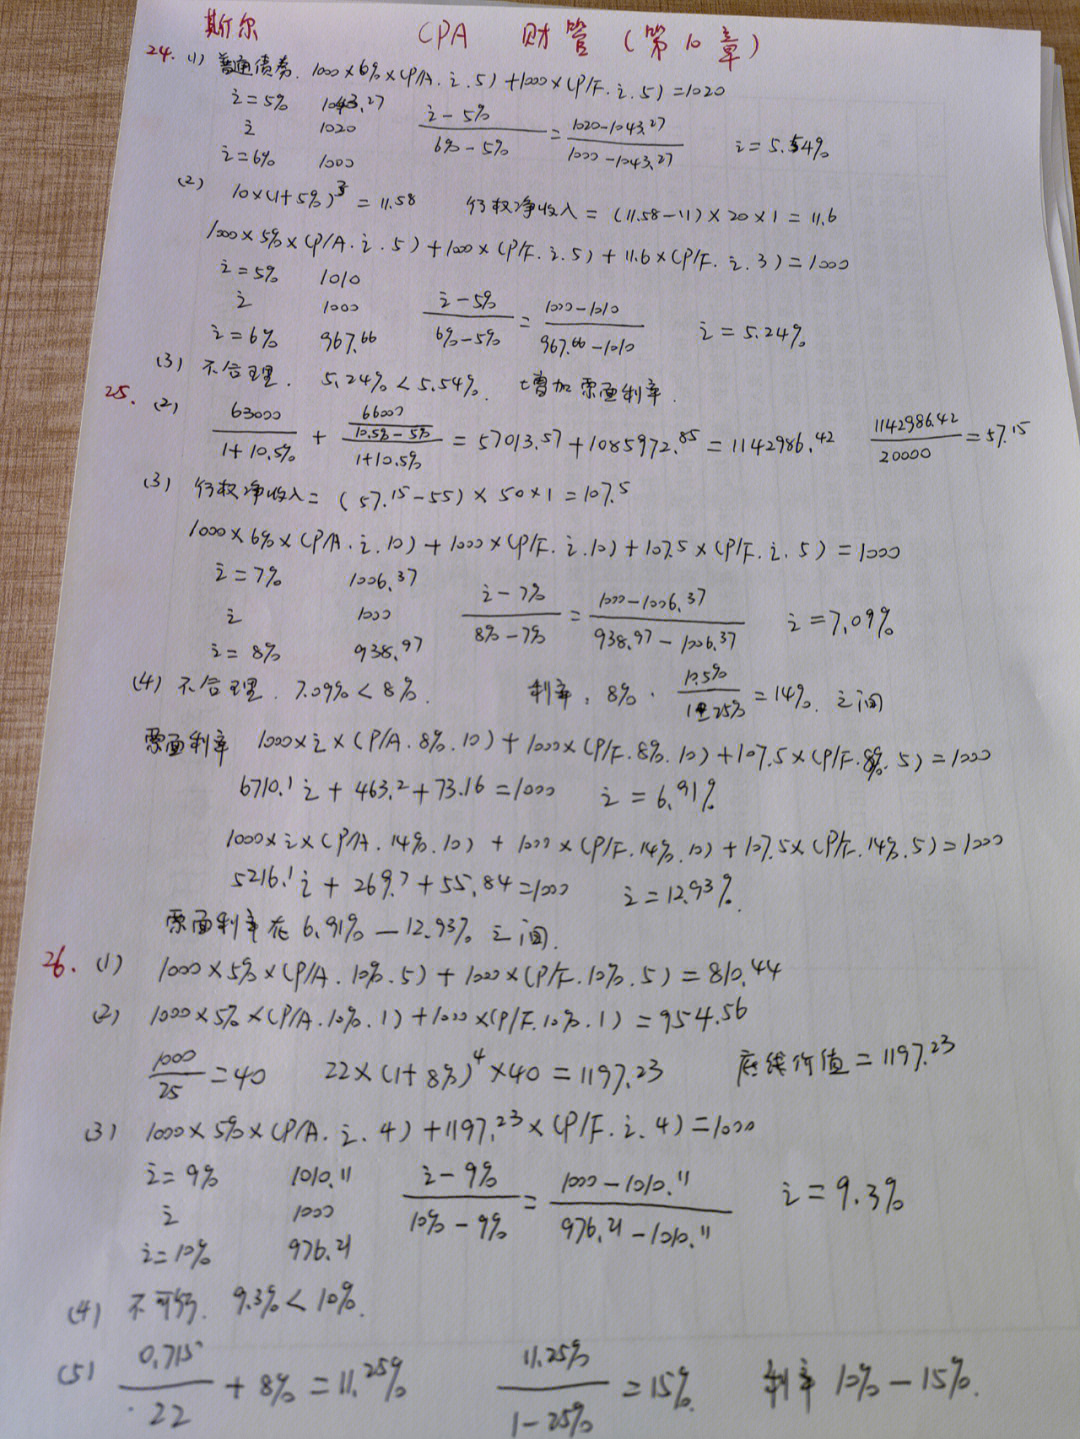 斯尔 CPA 财管(第10章)
24. (1) 普通债券. 1000×6%×(P/A.i.5)+1000×(P/F.i.5)=1020
i=5% 1043.27
i 1020
i=6% 1000
(i-5%)/(6%-5%) = (1020-1043.27)/(1000-1043.27) i=5.54%
(2) 10×(1+5%)^3=11.58 行权净收入=(11.58-11)×20×1=11.6
1000×5%×(P/A.i.5)+1000×(P/F.i.5)+11.6×(P/F.i.3)=1000
i=5% 1010
i 1000
i=6% 967.66
(i-5%)/(6%-5%) = (1000-1010)/(967.66-1010) i=5.24%
(3) 不合理. 5.24%<5.54%. 增加票面利率.
25. (2) 63000/(1+10.5%) + (66000/(10.5%-5%))/(1+10.5%) = 57013.57+1085972.85=1142986.42 1142986.42/20000=57.15
(3) 行权净收入=(57.15-55)×50×1=107.5
1000×6%×(P/A.i.10)+1000×(P/F.i.10)+107.5×(P/F.i.5)=1000
i=7% 1006.37
i 1000
i=8% 938.97
(i-7%)/(8%-7%) = (1000-1006.37)/(938.97-1006.37) i=7.09%
(4) 不合理. 7.09%<8%. 利率. 8%. 10.5%/(1-25%)=14%. 之间
票面利率 1000×i×(P/A.8%.10)+1000×(P/F.8%.10)+107.5×(P/F.8%.5)=1000
6710.1i+463.2+73.16=1000 i=6.91%
1000×i×(P/A.14%.10)+1000×(P/F.14%.10)+107.5×(P/F.14%.5)=1000
5216.1i+269.7+55.84=1000 i=12.93%.
票面利率在6.91%-12.93%之间.
26. (1) 1000×5%×(P/A.10%.5)+1000×(P/F.10%.5)=810.44
(2) 1000×5%×(P/A.10%.1)+1000×(P/F.10%.1)=954.56
1000/25=40 22×(1+8%)^4×40=1197.23 底线价值=1197.23
(3) 1000×5%×(P/A.i.4)+1197.23×(P/F.i.4)=1000
i=9% 1010.11
i 1000
i=10% 976.21
(i-9%)/(10%-9%) = (1000-1010.11)/(976.21-1010.11) i=9.3%
(4) 不可行. 9.3%<10%.
(5) 0.715/22+8%=11.25% 11.25%/(1-25%)=15%. 利率10%-15%.